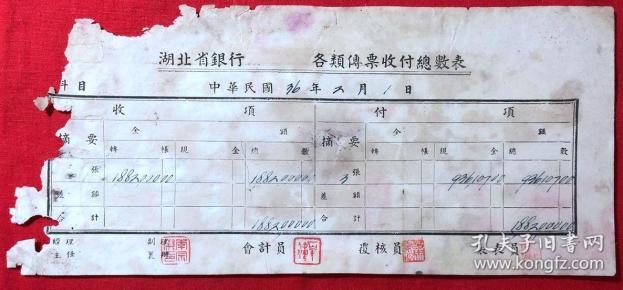 湖北省銀行 各類傳票收付總數表
科目 中華民國36年2月1日
收項 付項
摘要 金額 摘要 金額
轉帳 現金 總數 轉帳 現金 總數
張 188200000 188200000 3張 9361070 0 93610700
差額 差額
合計 188200000 合計 188200000
經理 副理 會計員 覆核員 製表員
主任
孔夫子旧书网
www.kongfz.com